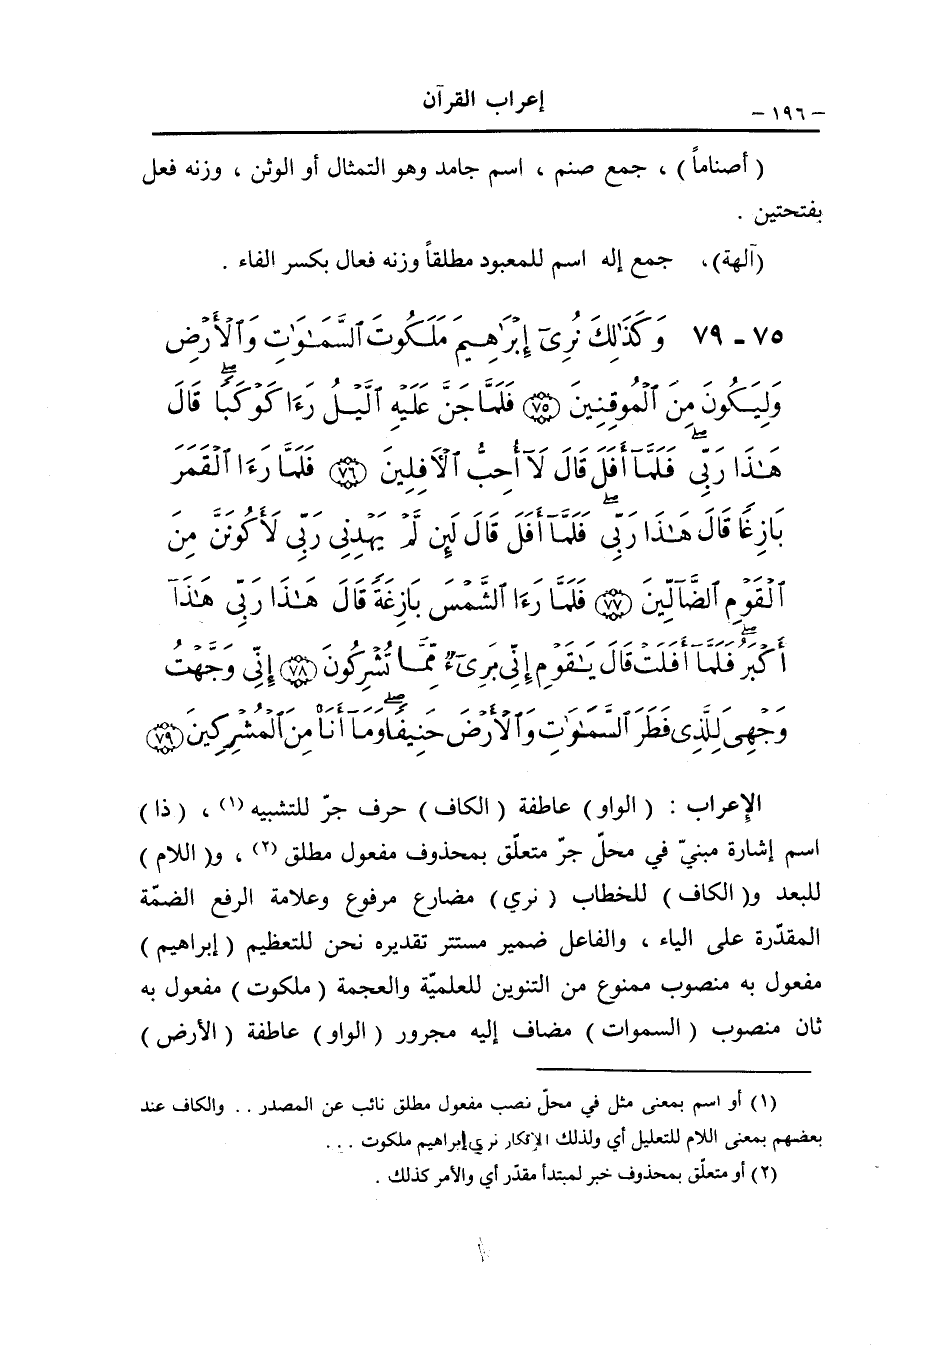 – ١٩٦ –
إعراب القرآن
( أصناماً ) ، جمع صنم ، اسم جامد وهو التمثال أو الوثن ، وزنه فعل
بفتحتين .
(آلهة)، جمع إله اسم للمعبود مطلقاً وزنه فعال بكسر الفاء .
٧٥ ـ ٧٩ وَكَذَٰلِكَ نُرِىٓ إِبْرَٰهِيمَ مَلَكُوتَ ٱلسَّمَـٰوَٰتِ وَٱلْأَرْضِ
وَلِيَكُونَ مِنَ ٱلْمُوقِنِينَ ﴿٧٥﴾ فَلَمَّا جَنَّ عَلَيْهِ ٱلَّيْلُ رَءَا كَوْكَبًا ۖ قَالَ
هَـٰذَا رَبِّى ۖ فَلَمَّآ أَفَلَ قَالَ لَآ أُحِبُّ ٱلْآفِلِينَ ﴿٧٦﴾ فَلَمَّا رَءَا ٱلْقَمَرَ
بَازِغًا قَالَ هَـٰذَا رَبِّى ۖ فَلَمَّآ أَفَلَ قَالَ لَئِن لَّمْ يَهْدِنِى رَبِّى لَأَكُونَنَّ مِنَ
ٱلْقَوْمِ ٱلضَّآلِّينَ ﴿٧٧﴾ فَلَمَّا رَءَا ٱلشَّمْسَ بَازِغَةً قَالَ هَـٰذَا رَبِّى هَـٰذَآ
أَكْبَرُ ۖ فَلَمَّآ أَفَلَتْ قَالَ يَـٰقَوْمِ إِنِّى بَرِىٓءٌ مِّمَّا تُشْرِكُونَ ﴿٧٨﴾ إِنِّى وَجَّهْتُ
وَجْهِىَ لِلَّذِى فَطَرَ ٱلسَّمَـٰوَٰتِ وَٱلْأَرْضَ حَنِيفًا ۖ وَمَآ أَنَا۠ مِنَ ٱلْمُشْرِكِينَ ﴿٧٩﴾
الإعراب : ( الواو ) عاطفة ( الكاف ) حرف جرّ للتشبيه (١) ، ( ذا )
اسم إشارة مبنيّ في محلّ جرّ متعلّق بمحذوف مفعول مطلق (٢) ، و( اللام )
للبعد و( الكاف ) للخطاب ( نري ) مضارع مرفوع وعلامة الرفع الضمّة
المقدّرة على الياء ، والفاعل ضمير مستتر تقديره نحن للتعظيم ( إبراهيم )
مفعول به منصوب ممنوع من التنوين للعلميّة والعجمة ( ملكوت ) مفعول به
ثان منصوب ( السموات ) مضاف إليه مجرور ( الواو ) عاطفة ( الأرض )
(١) أو اسم بمعنى مثل في محلّ نصب مفعول مطلق نائب عن المصدر .. والكاف عند
بعضهم بمعنى اللام للتعليل أي ولذلك الإنكار نري إبراهيم ملكوت ...
(٢) أو متعلّق بمحذوف خبر لمبتدأ مقدّر أي والأمر كذلك .